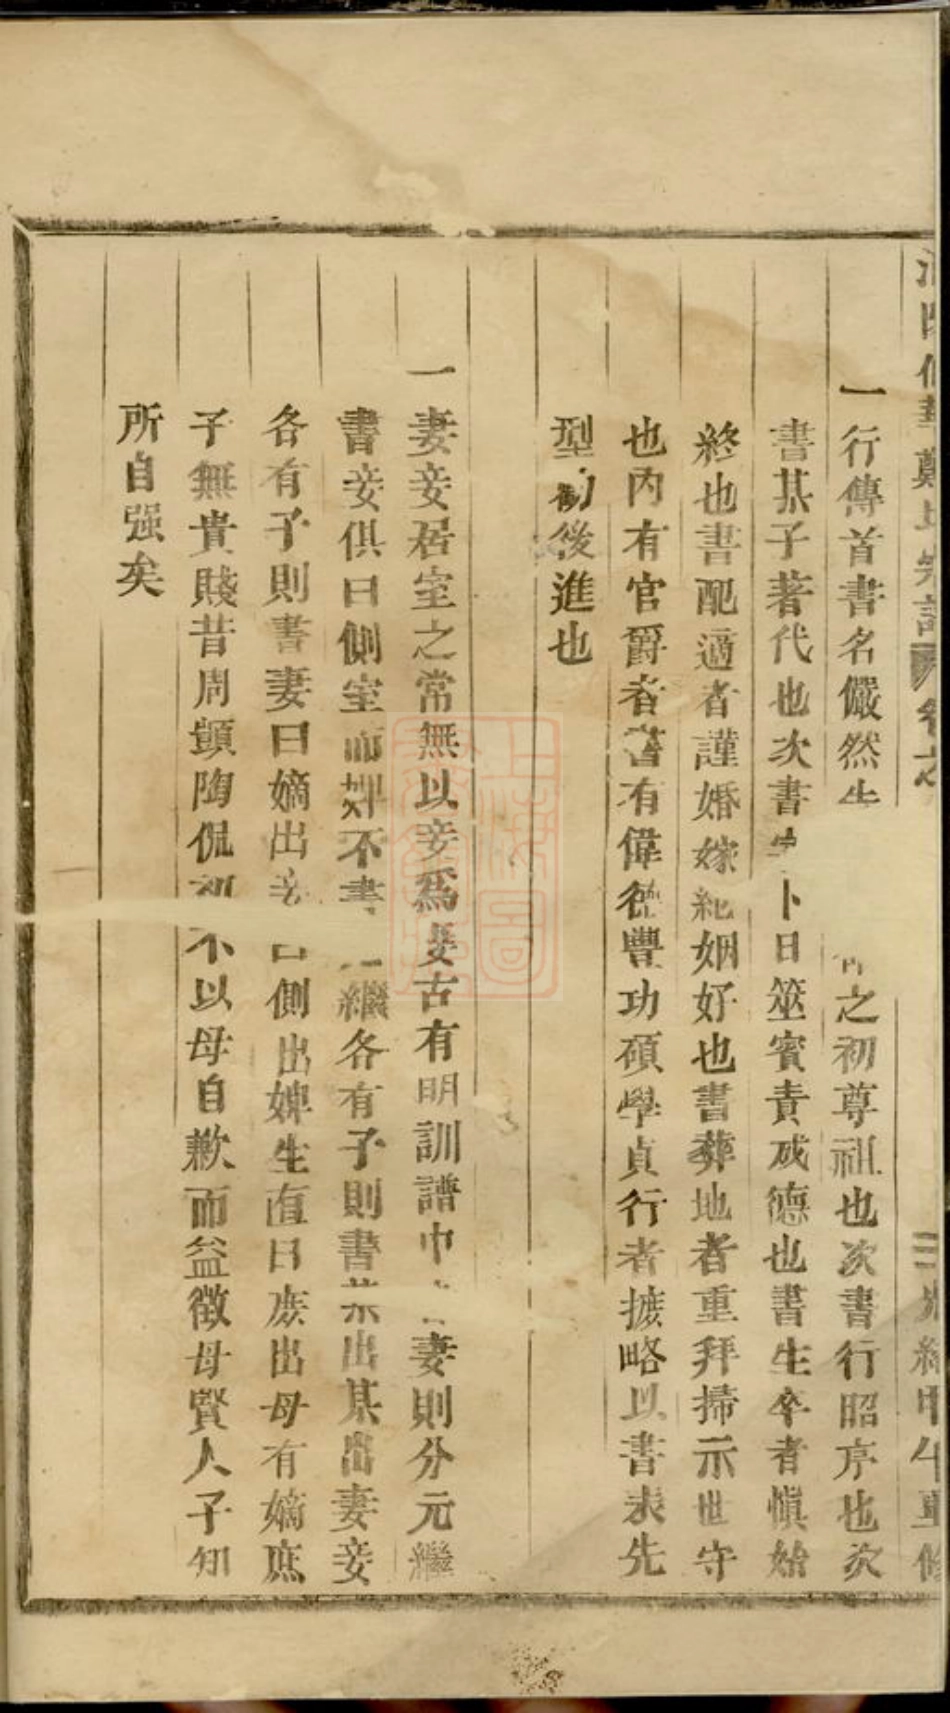 鄭氏宗譜 卷之 二 光緒甲午重修
一行傳首書名儼然生 之初尊祖也次書行昭序也次
書某子著代也次書字卜日筮賓責成德也書生卒者慎始
終也書配適者謹婚嫁紀姻好也書葬地者重拜掃示世守
也內有官爵者書有偉德豐功碩學貞行者摭略以書表先
型勸後進也
一妻妾居室之常無以妾爲妻古有明訓譜中 妻則分元繼
書妾俱曰側室而婢不書 繼各有子則書某出某出妻妾
各有子則書妻曰嫡出妾曰側出婢生直曰庶出母有嫡庶
子無貴賤昔周顗陶侃初不以母自歉而益徵母賢人子知
所自强矣